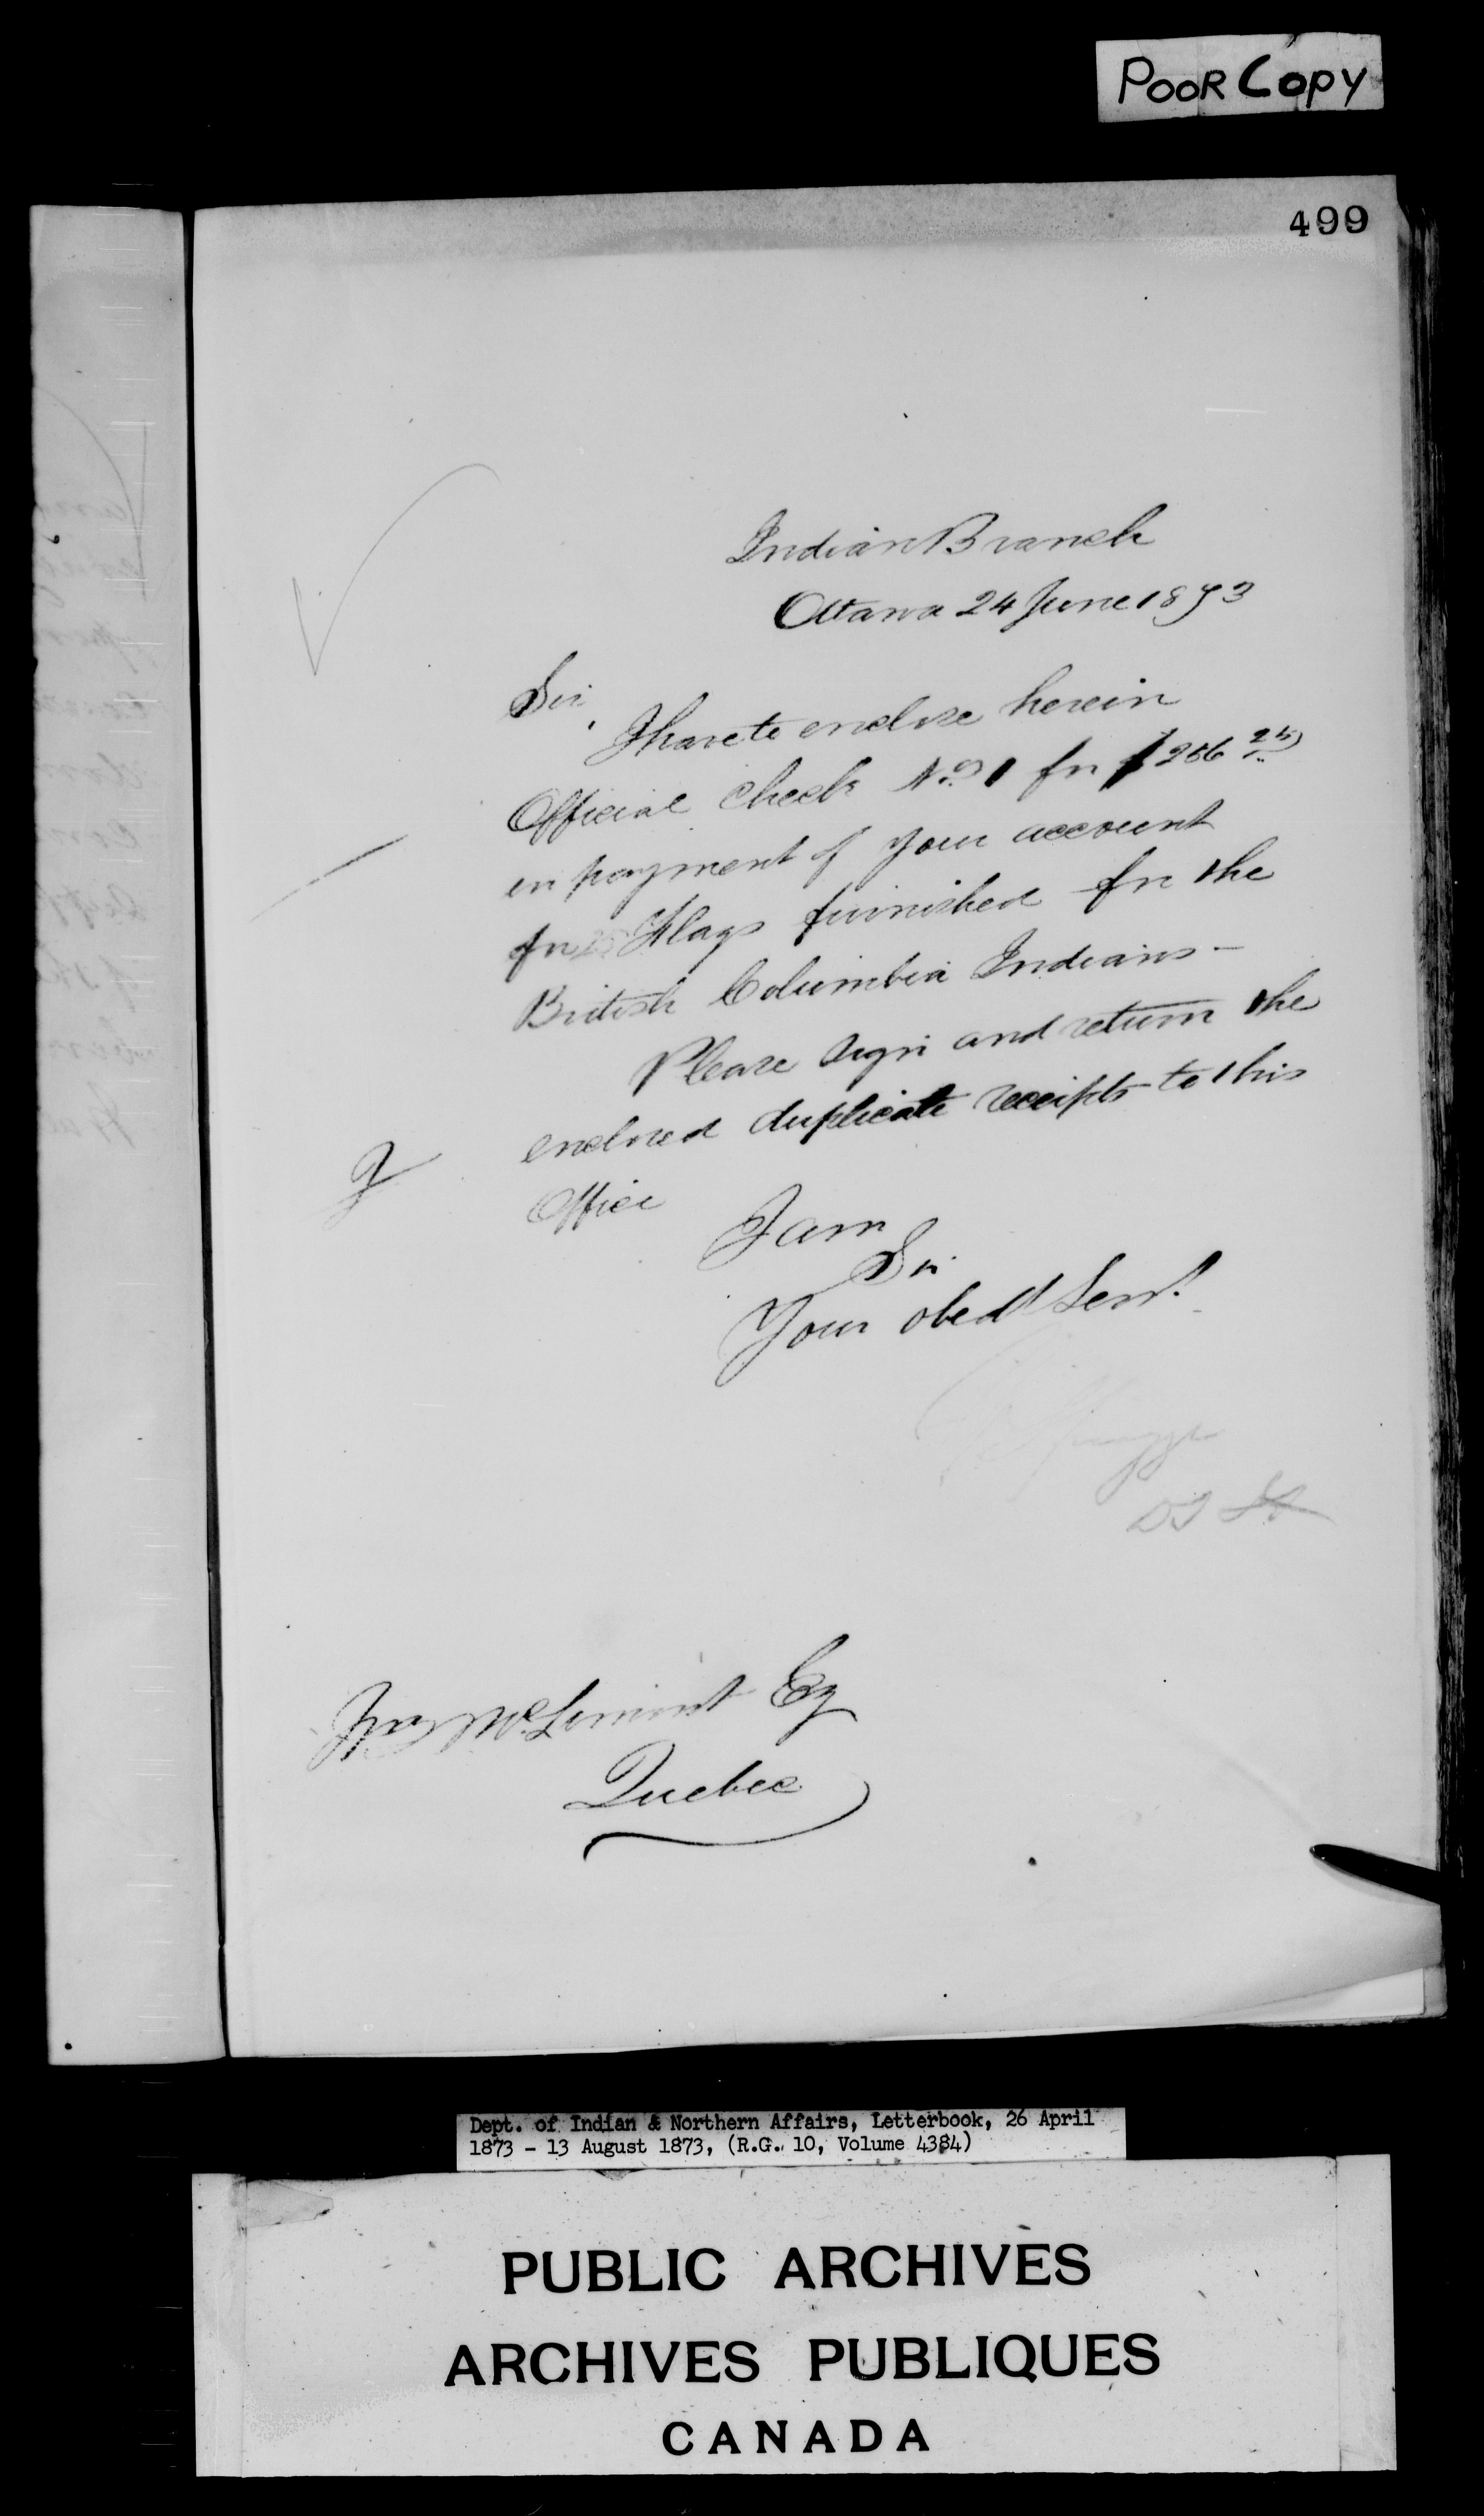 POOR COPY
499
Indian Branch
Ottawa 24 June 1873
Sir,
I have to enclose herein
Official Check No. 1 for $206 25
in payment of your account
for Flags furnished for the
British Columbia Indians -
Please sign and return the
enclosed duplicate receipts to this
Office
I am
Sir
Your obedt Servt
Wm McLimont Esq
Quebec
Dept. of Indian & Northern Affairs, Letterbook, 26 April
1873 - 13 August 1873, (R.G. 10, Volume 4384)
PUBLIC ARCHIVES
ARCHIVES PUBLIQUES
CANADA